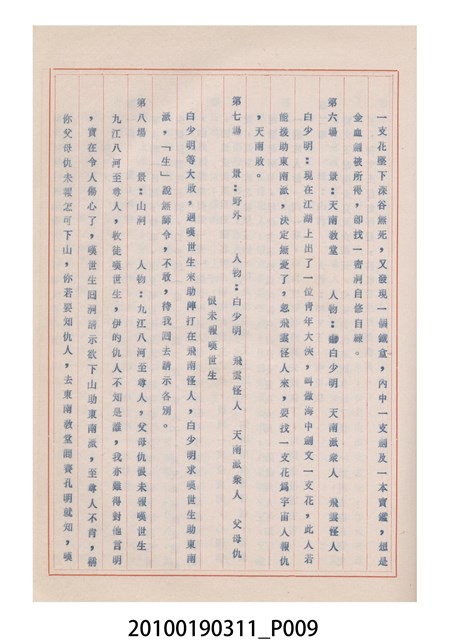 一支花墜下深谷無死，又發現一個鐵盒，內中一支劍及一本寶鑑，想是
金血劍被所得，卽找一密洞自修自練。
第六場　景：天南教堂　人物：白少明　天南派衆人　飛雲怪人
白少明：現在江湖上出了一位靑年大俠，叫做海中劍文一支花，此人若
能援助東南派，決定無憂了，忽飛雲怪人來，要找一支花爲宇宙人報仇
，天南敗。
第七場　景：野外　人物：白少明　飛雲怪人　天南派衆人　父母仇
恨未報嘆世生
白少明等大敗，遇嘆世生來助陣打在飛南怪人，白少明求嘆世生助東南
派，「生」說無師令，不敢，待我回去請示各別。
第八場　景：山洞　人物：九江八河至尊人，父母仇恨未報嘆世生
九江八河至尊人，收徒嘆世生，伊的仇人不知是誰，我亦難得對他言明
，實在令人傷心了，嘆世生回洞請示欲下山助東南派，至尊人不肯，講
你父母仇未報怎可下山，你若要知仇人，去東南教堂問賽孔明就知，嘆
20100190311_P009